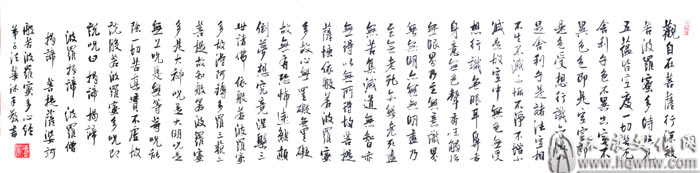 觀自在菩薩行深般
若波羅蜜多時照見
五蘊皆空度一切苦厄
舍利子色不異空空不
異色色即是空空即
是色受想行識亦復如
是舍利子是諸法空相
不生不滅不垢不淨不增不
減是故空中無色無受
想行識無眼耳鼻舌
身意無色聲香味觸法
無眼界乃至無意識界
無無明亦無無明盡
乃至無老死亦無老死盡
無苦集滅道無智亦
無得以無所得故菩提
薩埵依般若波羅蜜
多故心無罣礙無罣礙
故無有恐怖遠離顛
倒夢想究竟涅槃三
世諸佛依般若波羅蜜
多故得阿耨多羅三藐三
菩提故知般若波羅蜜
多是大神咒是大明咒是
無上咒是無等等咒能
除一切苦真實不虛故
說般若波羅蜜多咒即
說咒曰揭諦揭諦
波羅揭諦波羅僧
揭諦菩提薩婆訶
般若波羅蜜多心經
www.hqwhw.com